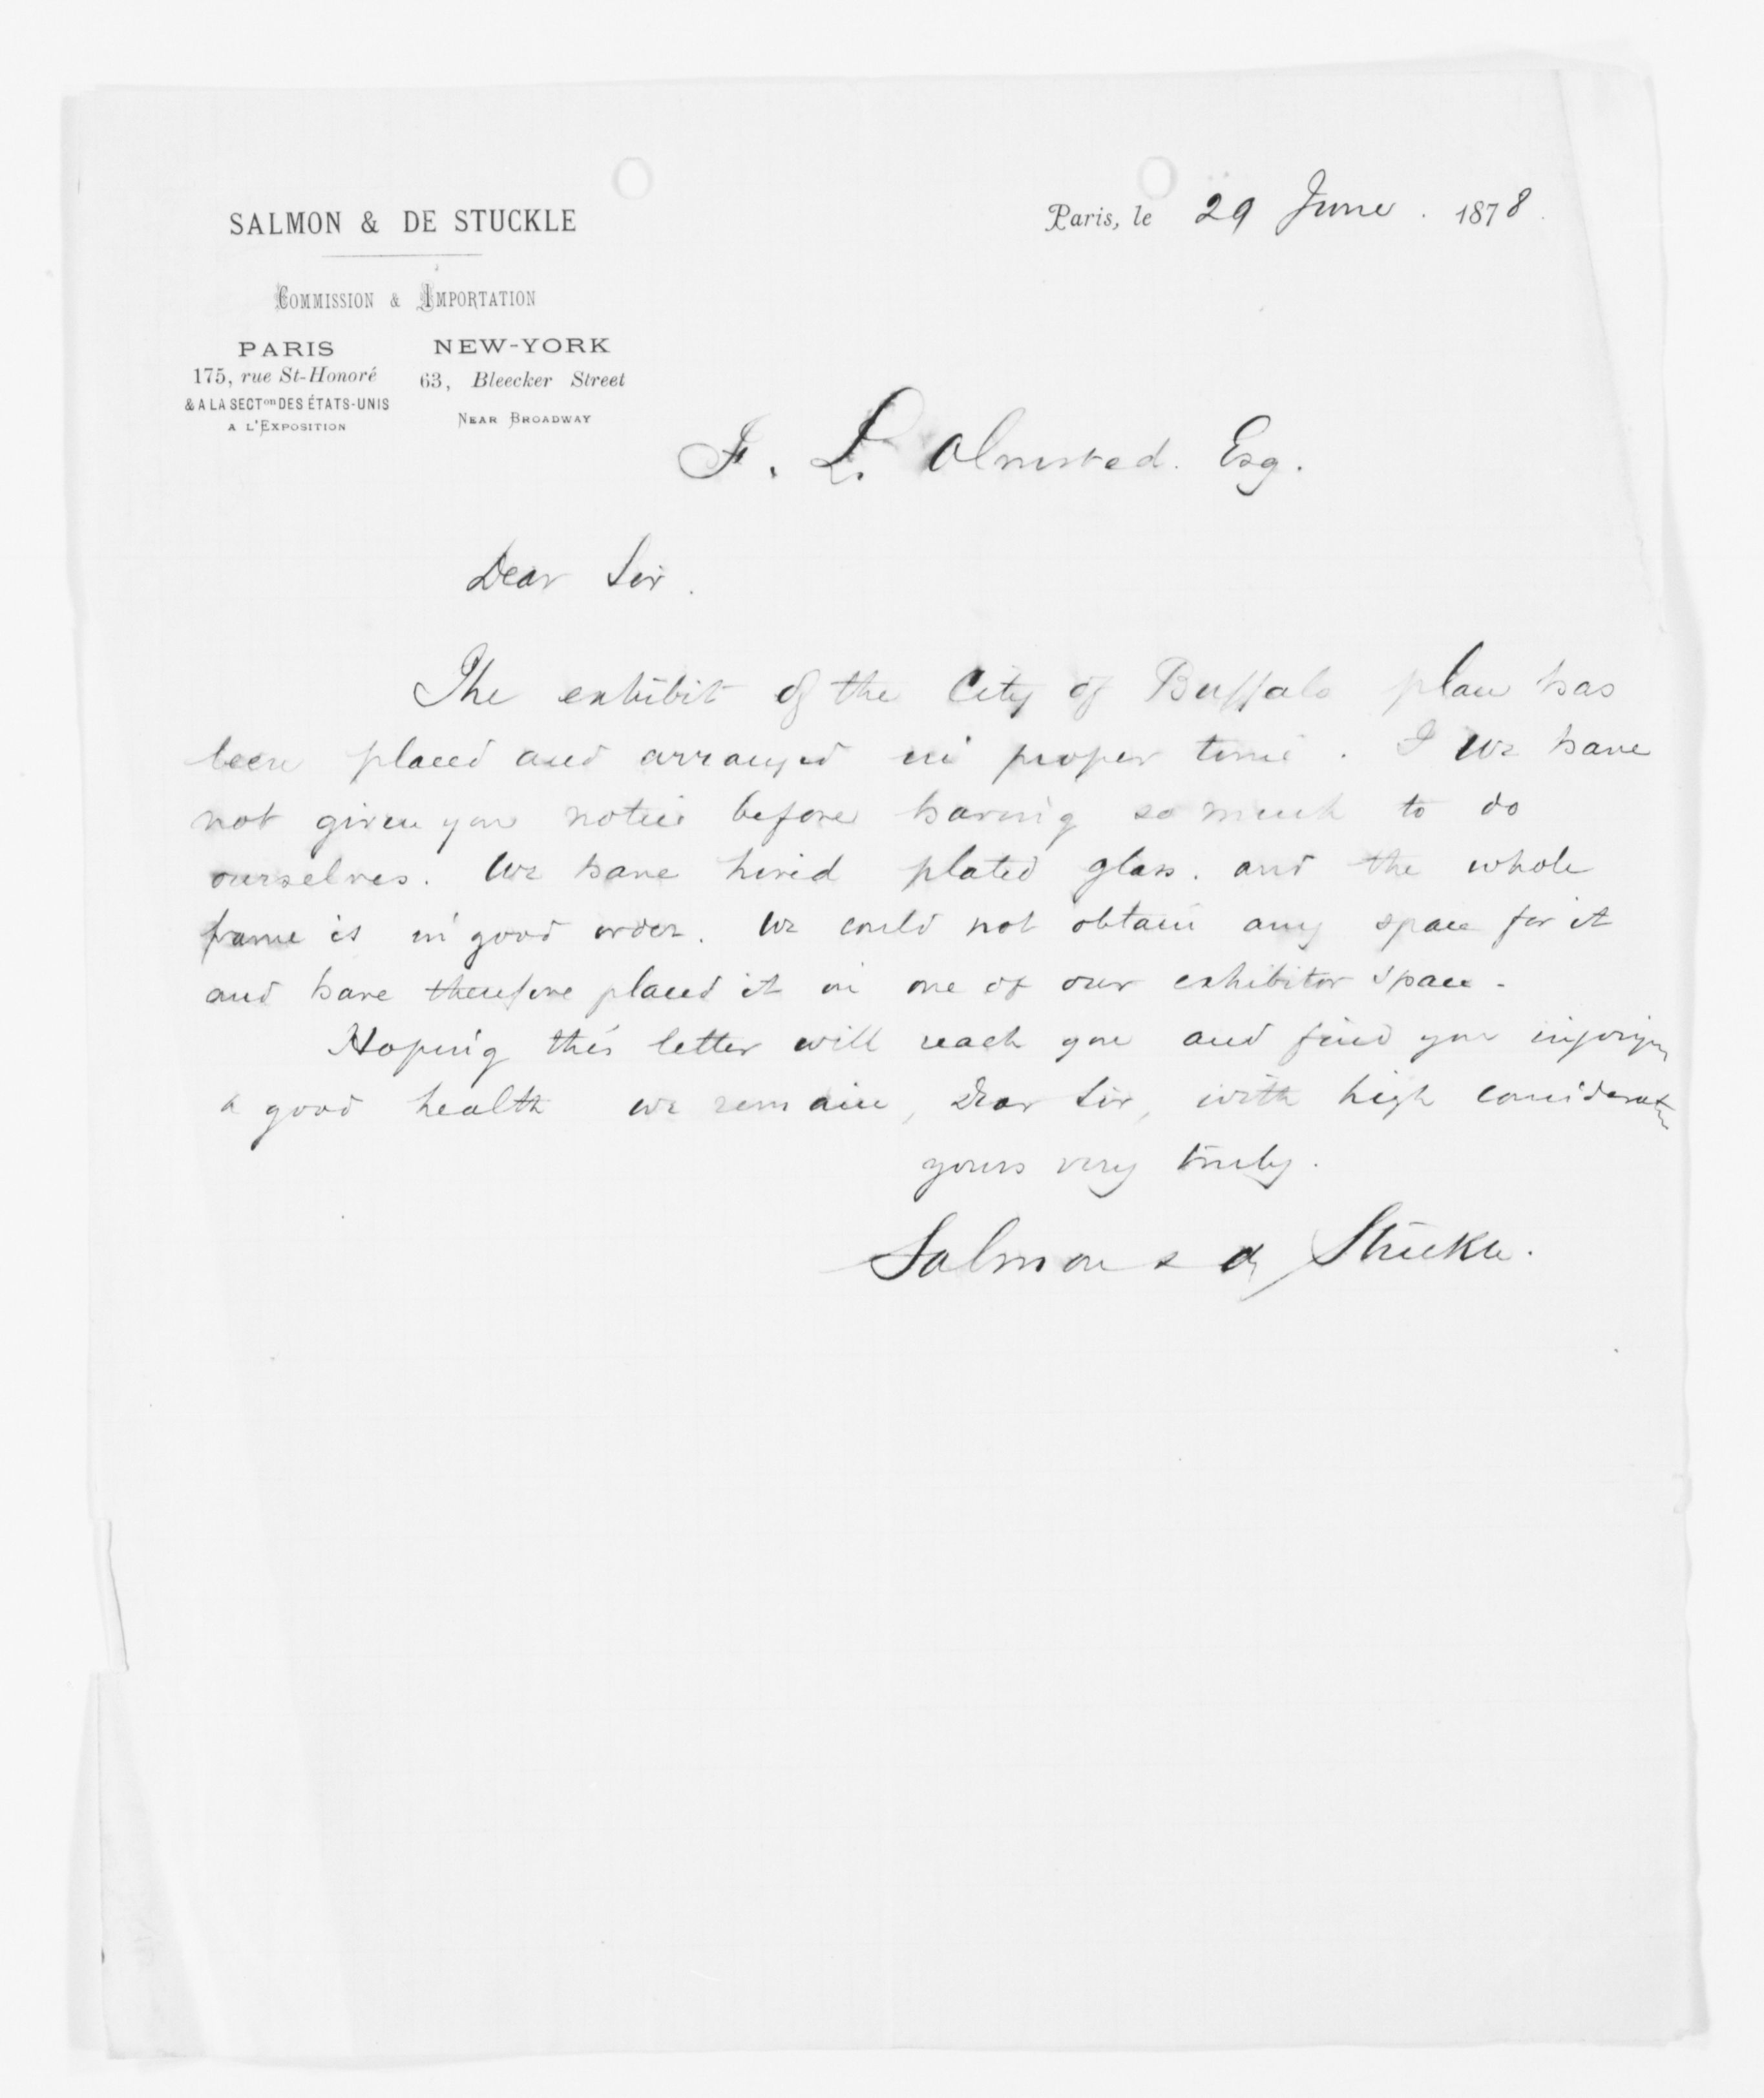 SALMON & DE STUCKLE
Paris, le 29 June. 1878.
COMMISSION & IMPORTATION
PARIS
175, rue St-Honoré
& A LA SECTon DES ÉTATS-UNIS
A L'EXPOSITION
NEW-YORK
63, Bleecker Street
NEAR BROADWAY
F. L. Olmsted. Esq.
Dear Sir.
The exhibit of the City of Buffalo plan has
been placed and arranged in proper time. I We have
not given you notice before having so much to do
ourselves. We have hired plated glass. and the whole
frame is in good order. We could not obtain any space for it
and have therefore placed it in one of our exhibitor space.
Hoping this letter will reach you and find you injoying
a good health we remain, Dear Sir, with high consideration
yours very truly.
Salmon & de Stuckle.